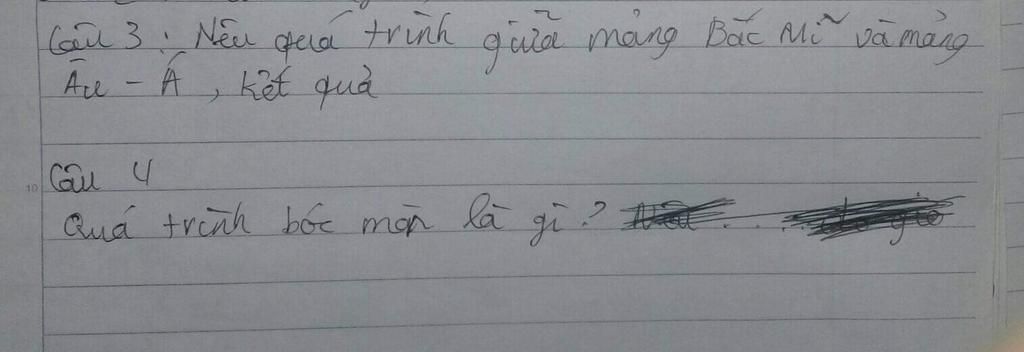 Câu 3: Nêu quá trình giữa mảng Bắc Mĩ và mảng
Âu - Á, kết quả
Câu 4
Quá trình bóc mòn là gì?